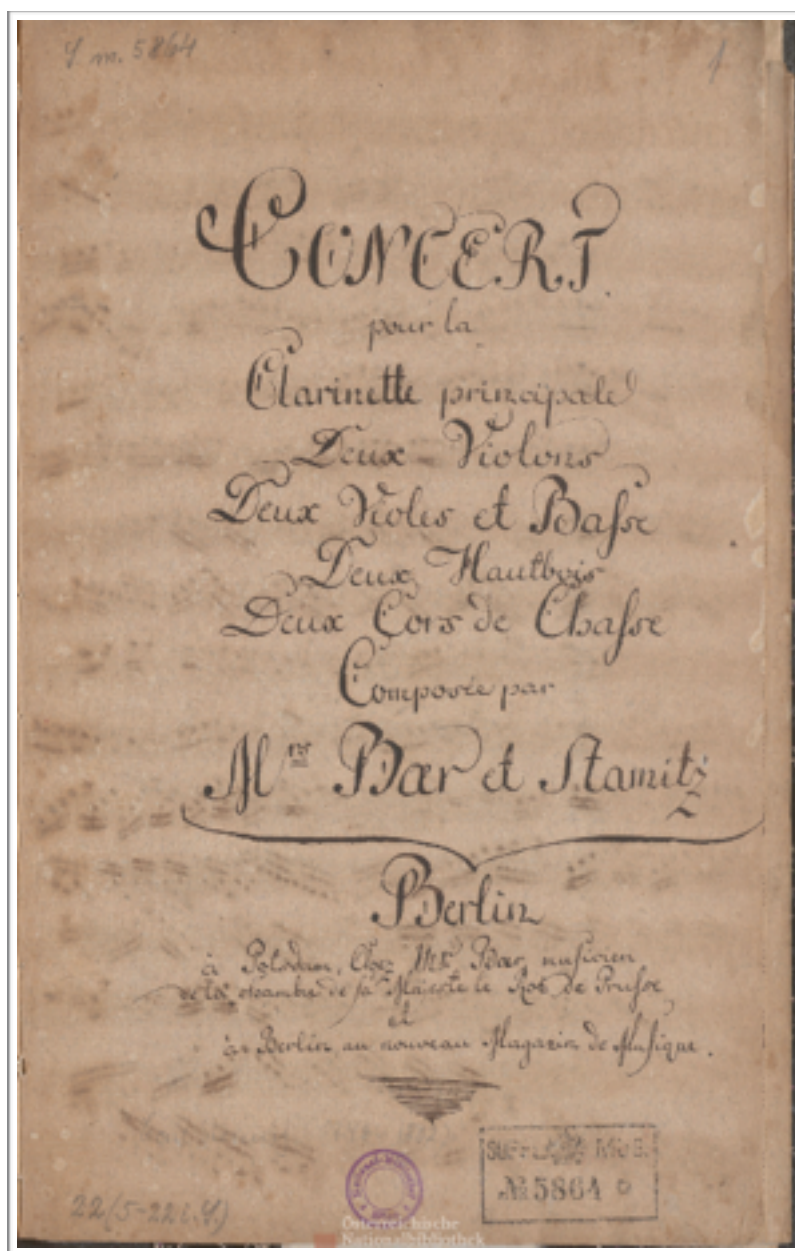 m. 5864
1
CONCERT.
pour la
Clarinette principale
Deux Violons
Deux Violes et Basse
Deux Hautbois
Deux Cors de Chasse
Composée par
Mrs Bær et Stamitz
Berlin
à Potsdam, Chez Mr. Bær, musicien
de la chambre de sa Majesté le Roi de Prusse
et
à Berlin au nouveau Magazin de Musique.
Suppl. Mus.
№ 5864
22(5-22
National-Bibliothek
Österreichische
Nationalbibliothek